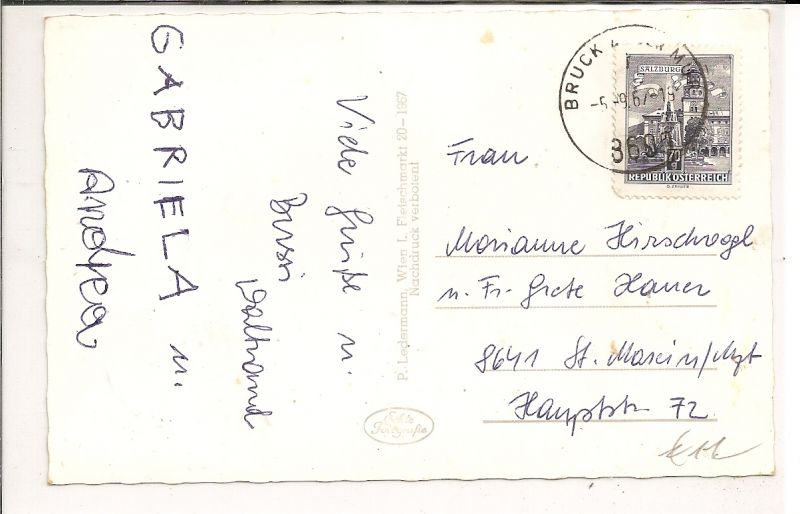 GABRIELA u.
Andrea
Viele Grüße u.
Bussi
Waltraud
P. Ledermann, Wien I., Fleischmarkt 20 – 1967
Nachdruck verboten!
Echte
Fotografie
BRUCK MUR
-5.-9.67-19
SALZBURG
70
REPUBLIK ÖSTERREICH
Frau
Marianne Hirschvogl
u. Fr. Grete Hauer
8641 St. Marein/Mzt
Hauptstr. 72